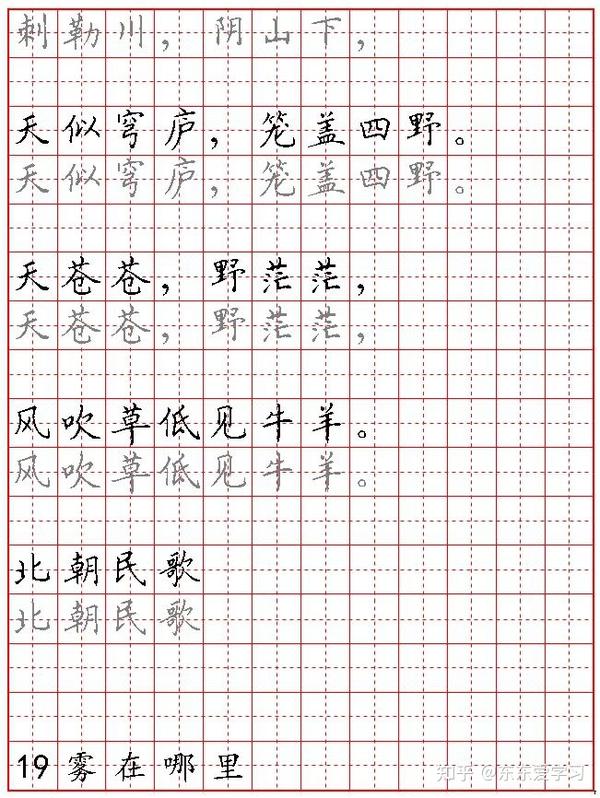 刺勒川，阴山下，
天似穹庐，笼盖四野。
天似穹庐，笼盖四野。
天苍苍，野茫茫，
天苍苍，野茫茫，
风吹草低见牛羊。
风吹草低见牛羊。
北朝民歌
北朝民歌
19雾在哪里
知乎 @东东爱学习